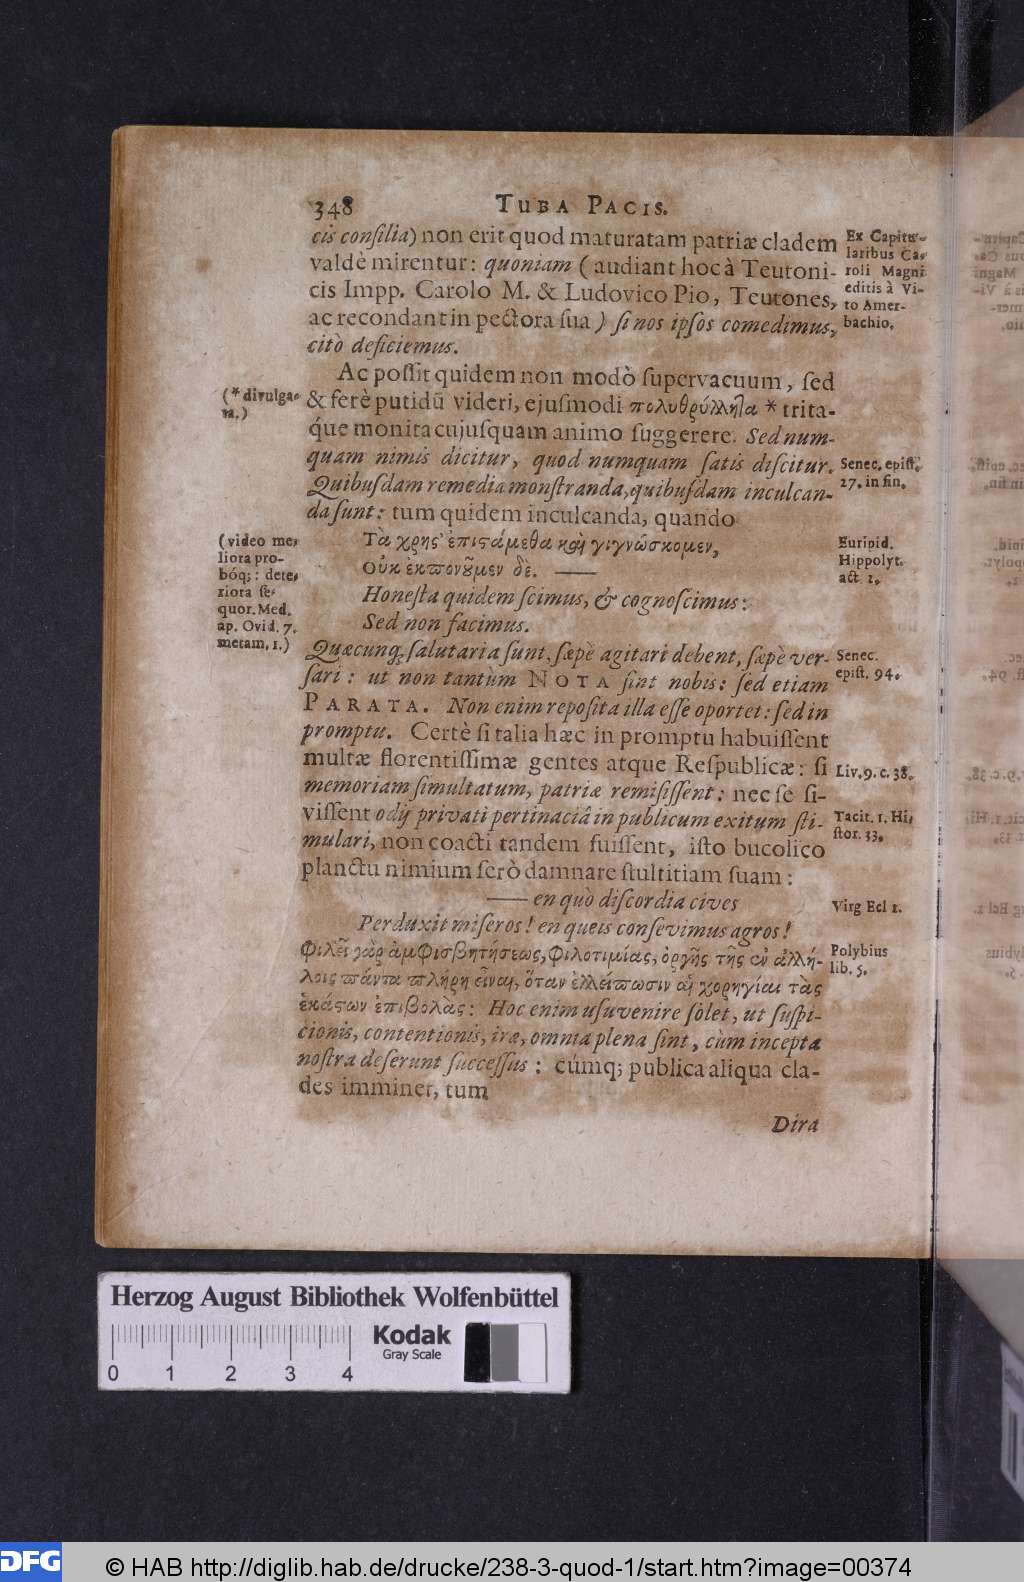 348 TUBA PACIS.
cis consilia) non erit quod maturatam patriæ cladem
valdè mirentur: quoniam (audiant hoc à Teutoni-
cis Impp. Carolo M. & Ludovico Pio, Teutones,
ac recondant in pectora sua) si nos ipsos comedimus,
citò deficiemus.
Ex Capitu-
laribus Ca-
roli Magni
editis à Vi-
to Amer-
bachio.
Ac possit quidem non modò supervacuum, sed
& ferè putidū videri, ejusmodi πολυθρύλληλα * trita-
que monita cujusquam animo suggerere. Sed num-
quam nimis dicitur, quod numquam satis discitur.
Quibusdam remedia monstranda, quibusdam inculcan-
da sunt: tum quidem inculcanda, quando
(* divulga-
ta.)
Senec. epist.
27. in fin.
Τὰ χρής' ἐπιστάμεθα καὶ γιγνώσκομεν,
Οὐκ ἐκπονοῦμεν δὲ. ——
Honesta quidem scimus, & cognoscimus:
Sed non facimus.
(video me-
liora pro-
bóq; : dete-
riora se-
quor. Med.
ap. Ovid. 7.
metam. 1.)
Euripid.
Hippolyt.
act. 1.
Quæcunq; salutaria sunt, sæpè agitari debent, sæpè ver-
sari: ut non tantùm NOTA sint nobis: sed etiam
PARATA. Non enim reposita illa esse oportet: sed in
promptu. Certè si talia hæc in promptu habuissent
multæ florentissimæ gentes atque Respublicæ: si
memoriam simultatum, patriæ remisissent: nec se si-
vissent odij privati pertinaciâ in publicum exitum sti-
mulari, non coacti tandem fuissent, isto bucolico
planctu nimium serò damnare stultitiam suam:
Senec.
epist. 94.
Liv. 9. c. 38.
Tacit. 1. Hi-
stor. 33.
—— en quò discordia cives
Perduxit miseros! en queis consevimus agros!
Virg Ecl 1.
Φιλεῖ γὰρ ἀμφισβητήσεως, φιλοτιμίας, ὀργῆς τῆς ἐν ἀλλή-
λοις πάντα πλήρη εἶναι, ὅταν ἐλλείπωσιν αἱ χορηγίαι τὰς
ἑκάστων ἐπιβολὰς: Hoc enim usuvenire solet, ut suspi-
cionis, contentionis, iræ, omnia plena sint, cùm incepta
nostra deserunt successus: cúmq; publica aliqua cla-
des imminet, tum
Polybius
lib. 5.
Dira
Herzog August Bibliothek Wolfenbüttel
Kodak
Gray Scale
0 1 2 3 4
DFG © HAB http://diglib.hab.de/drucke/238-3-quod-1/start.htm?image=00374